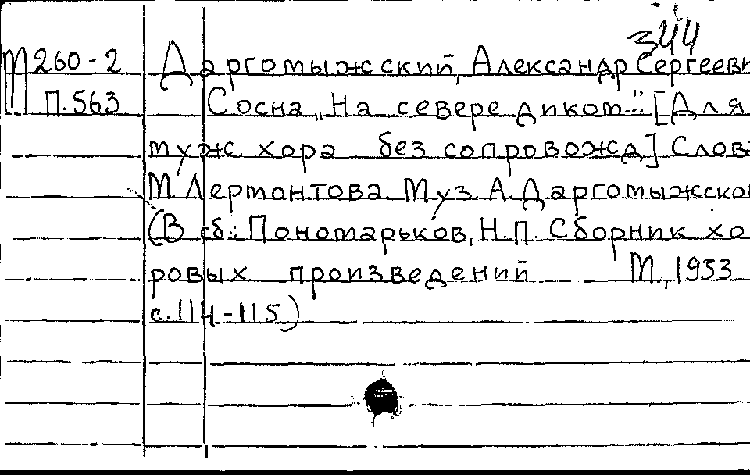 344
М260-2 Даргомыжский, Александр Сергеевич
П.563 Сосна „На севере диком..." [Для
муж хора без сопровожд] Слова
М Лермонтова Муз А Даргомыжского
(В сб.: Пономарьков, Н.П. Сборник хо
ровых произведений М., 1953
с. 114-115)